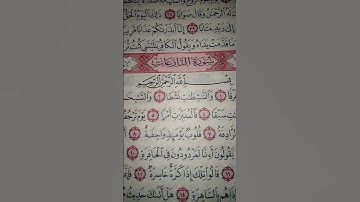 الرَّحْمَٰنُ وَقَالَ صَوَابًا ٣٨ ذَٰلِكَ الْيَوْمُ الْحَقُّ
مَـَٔابًا ٣٩ إِنَّا أَنذَرْنَٰكُمْ عَذَابًا قَرِيبًا
مَا قَدَّمَتْ يَدَاهُ وَيَقُولُ الْكَافِرُ يَٰلَيْتَنِي كُنتُ
سُورَةُ النَّازِعَاتِ
بِسْمِ اللَّهِ الرَّحْمَٰنِ الرَّحِيمِ
رْقًا ١ وَالنَّٰشِطَٰتِ نَشْطًا ٢ وَالسَّٰبِحَٰ
تِ سَبْقًا ٤ فَالْمُدَبِّرَٰتِ أَمْرًا ٥ يَوْمَ تَرْجُفُ
رَّادِفَةُ ٧ قُلُوبٌ يَوْمَئِذٍ وَاجِفَةٌ ٨
يَقُولُونَ أَءِنَّا لَمَرْدُودُونَ فِي الْحَافِرَةِ ١٠
١١ قَالُوا تِلْكَ إِذًا كَرَّةٌ خَاسِرَةٌ ١٢
ذَا هُم بِالسَّاهِرَةِ ١٤ هَلْ أَتَىٰكَ حَدِيثُ